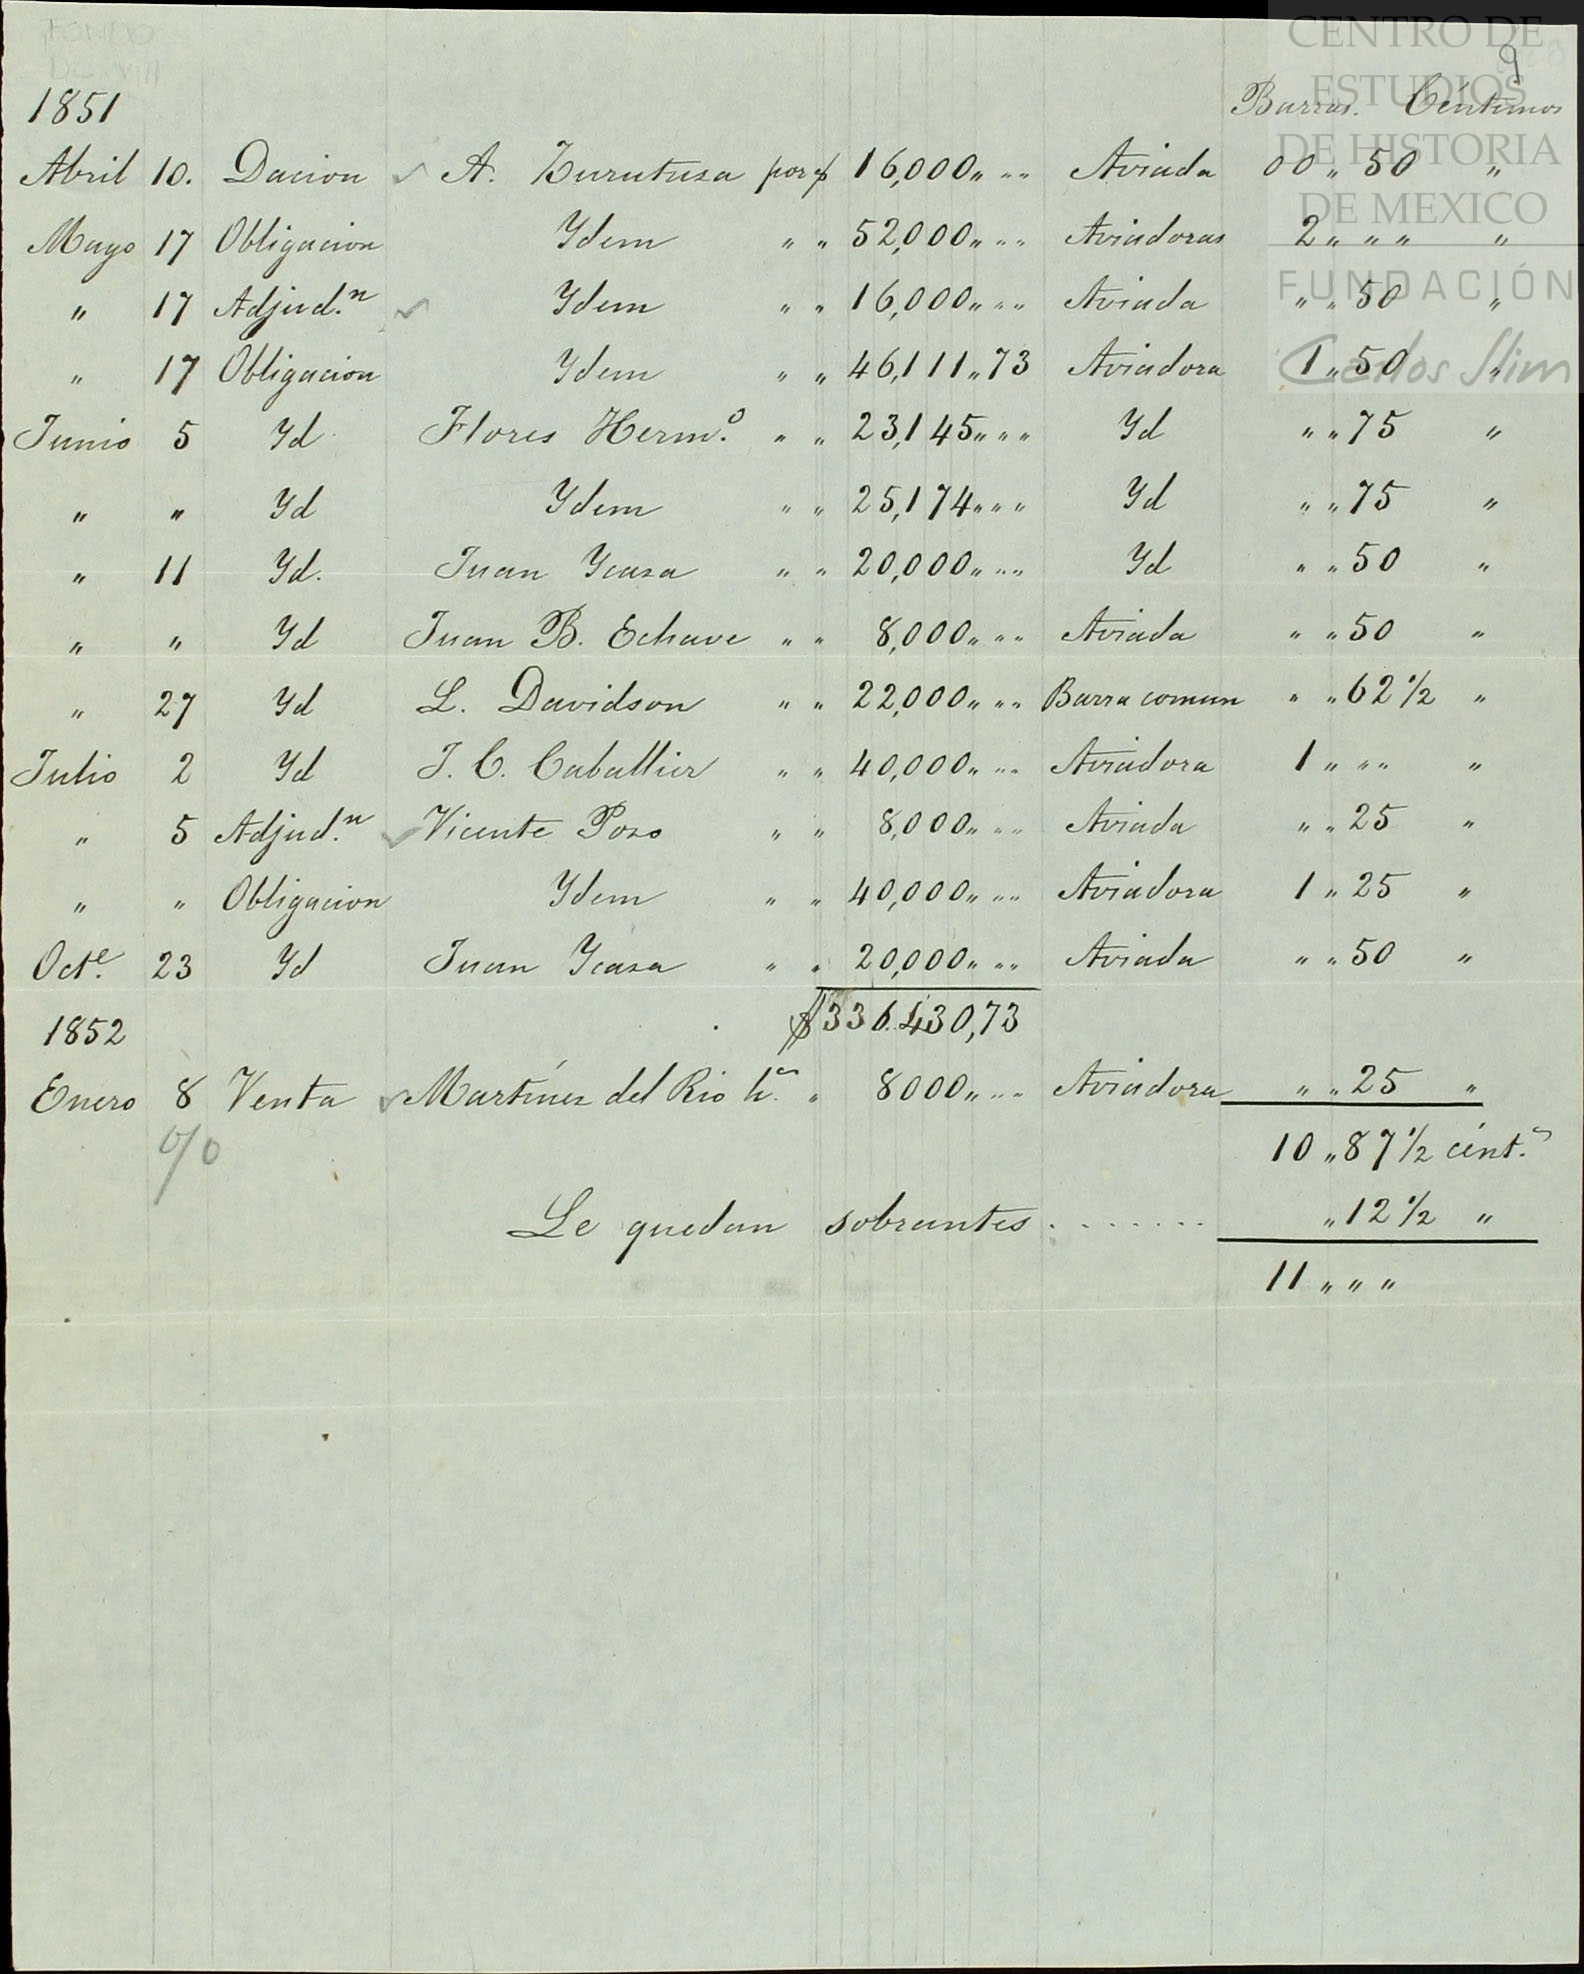 FONDO
DCXVIII
CENTRO DE
ESTUDIOS
DE HISTORIA
DE MEXICO
FUNDACIÓN
Carlos Slim
9
1851 Barras. Céntimos
Abril 10. Dacion A. Zurutusa por $ 16,000 „ „ „ Aviada 00 „ 50 „
Mayo 17 Obligacion Ydem „ „ 52,000 „ „ „ Aviadoras 2 „ „ „ „
„ 17 Adjud.n Ydem „ „ 16,000 „ „ „ Aviada „ „ 50 „
„ 17 Obligacion Ydem „ „ 46,111 „ 73 Aviadora 1 „ 50 „
Junio 5 Yd Flores Herm.o „ „ 23,145 „ „ „ Yd „ „ 75 „
„ „ Yd Ydem „ „ 25,174 „ „ „ Yd „ „ 75 „
„ 11 Yd. Juan Ycasa „ „ 20,000 „ „ „ Yd „ „ 50 „
„ „ Yd Juan B. Echave „ „ 8,000 „ „ „ Aviada „ „ 50 „
„ 27 Yd L. Davidson „ „ 22,000 „ „ „ Barra comun „ „ 62 ½ „
Julio 2 Yd J. C. Caballier „ „ 40,000 „ „ „ Aviadora 1 „ „ „ „
„ 5 Adjud.n Vicente Poso „ „ 8,000 „ „ „ Aviada „ „ 25 „
„ „ Obligacion Ydem „ „ 40,000 „ „ „ Aviadora 1 „ 25 „
Oct.e 23 Yd Juan Ycasa „ „ 20,000 „ „ „ Aviada „ „ 50 „
$336.430,73
1852
Enero 8 Venta Martínez del Rio h.s „ 8000 „ „ „ Aviadora „ „ 25 „
10 „ 87 ½ cént.s
Le quedan sobrantes . . . . . . . „ 12 ½ „
11 „ „ „